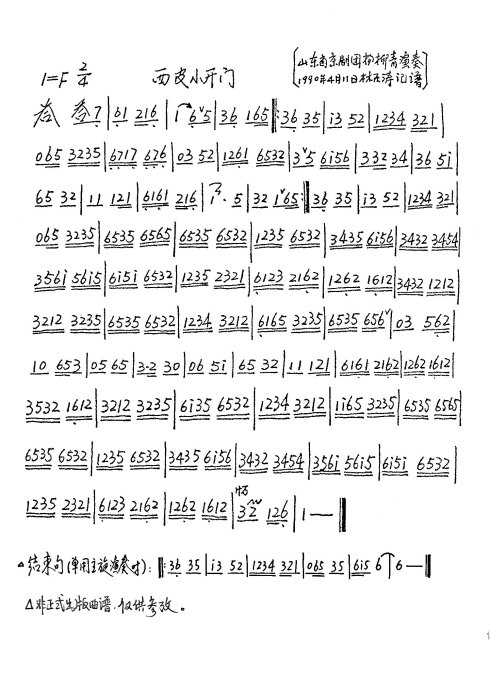 1=F 2/4 西皮小开门 山东省京剧团杨柳青演奏
1990年4月11日 记谱
7|61 216|1 6ᵛ5|36 165‖:36 35|i3 52|1234 321|
065 3235|6717 676|03 52|1261 6532|3ᵛ5 6i56|332 34|36 5i|
65 32|11 121|6161 216|1· 5|32 1ᵛ65:‖36 35|i3 52|1234 321|
065 3235|6535 6565|6535 6532|1235 6532|3435 6i56|3432 3454|
356i 56i5|6i5i 6532|1235 2321|6123 2162|1262 1612|3432 1212|
3212 3235|6535 6532|1234 3212|6165 3235|6535 656ᵛ|03 562|
10 653|05 65|3·2 30|06 5i|65 32|11 121|6161 2162|1262 1612|
3532 1612|3212 3235|6i35 6532|1234 3212|1i65 3235|6535 6565|
6535 6532|1235 6532|3435 6i56|3432 3454|356i 56i5|6i5i 6532|
1235 2321|6123 2162|1262 1612|32 126|1—‖
△结束句(单用主旋演奏时):‖:36 35|i3 52|1234 321|065 35|6i5 6|6—‖
△非正式出版曲谱,仅供参改。
1